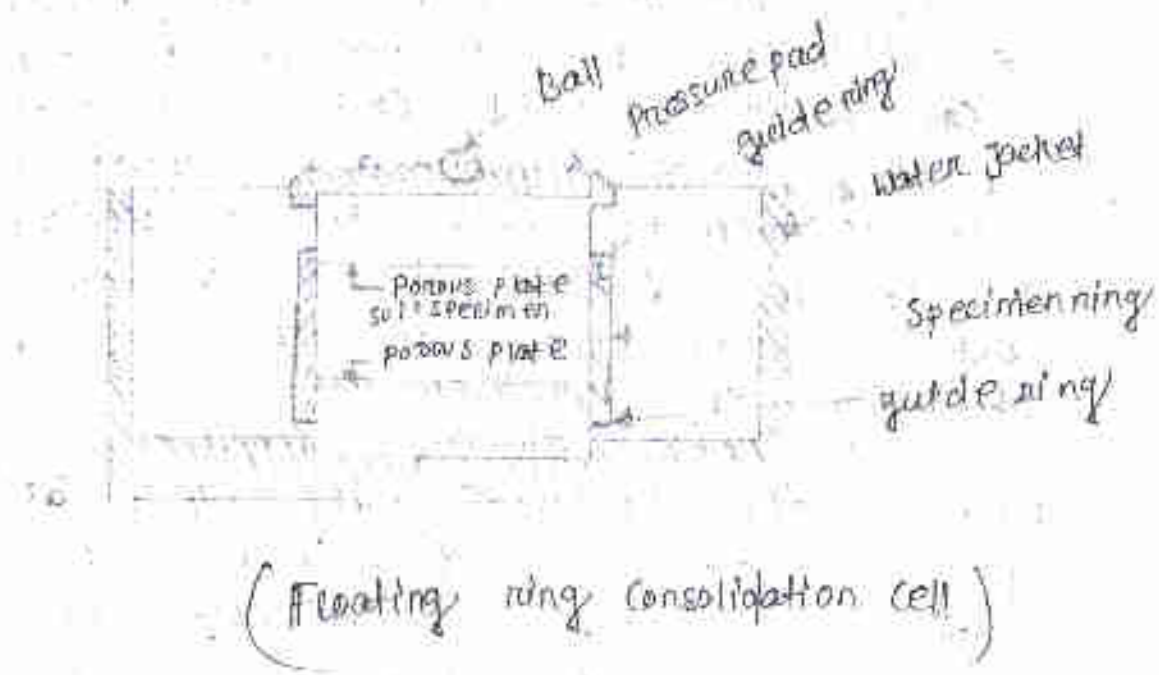 Ball
Pressure pad
guide ring
Water Jacket
Porous plate
soil specimen
porous plate
Specimen ring
guide ring
(Floating ring Consolidation cell)